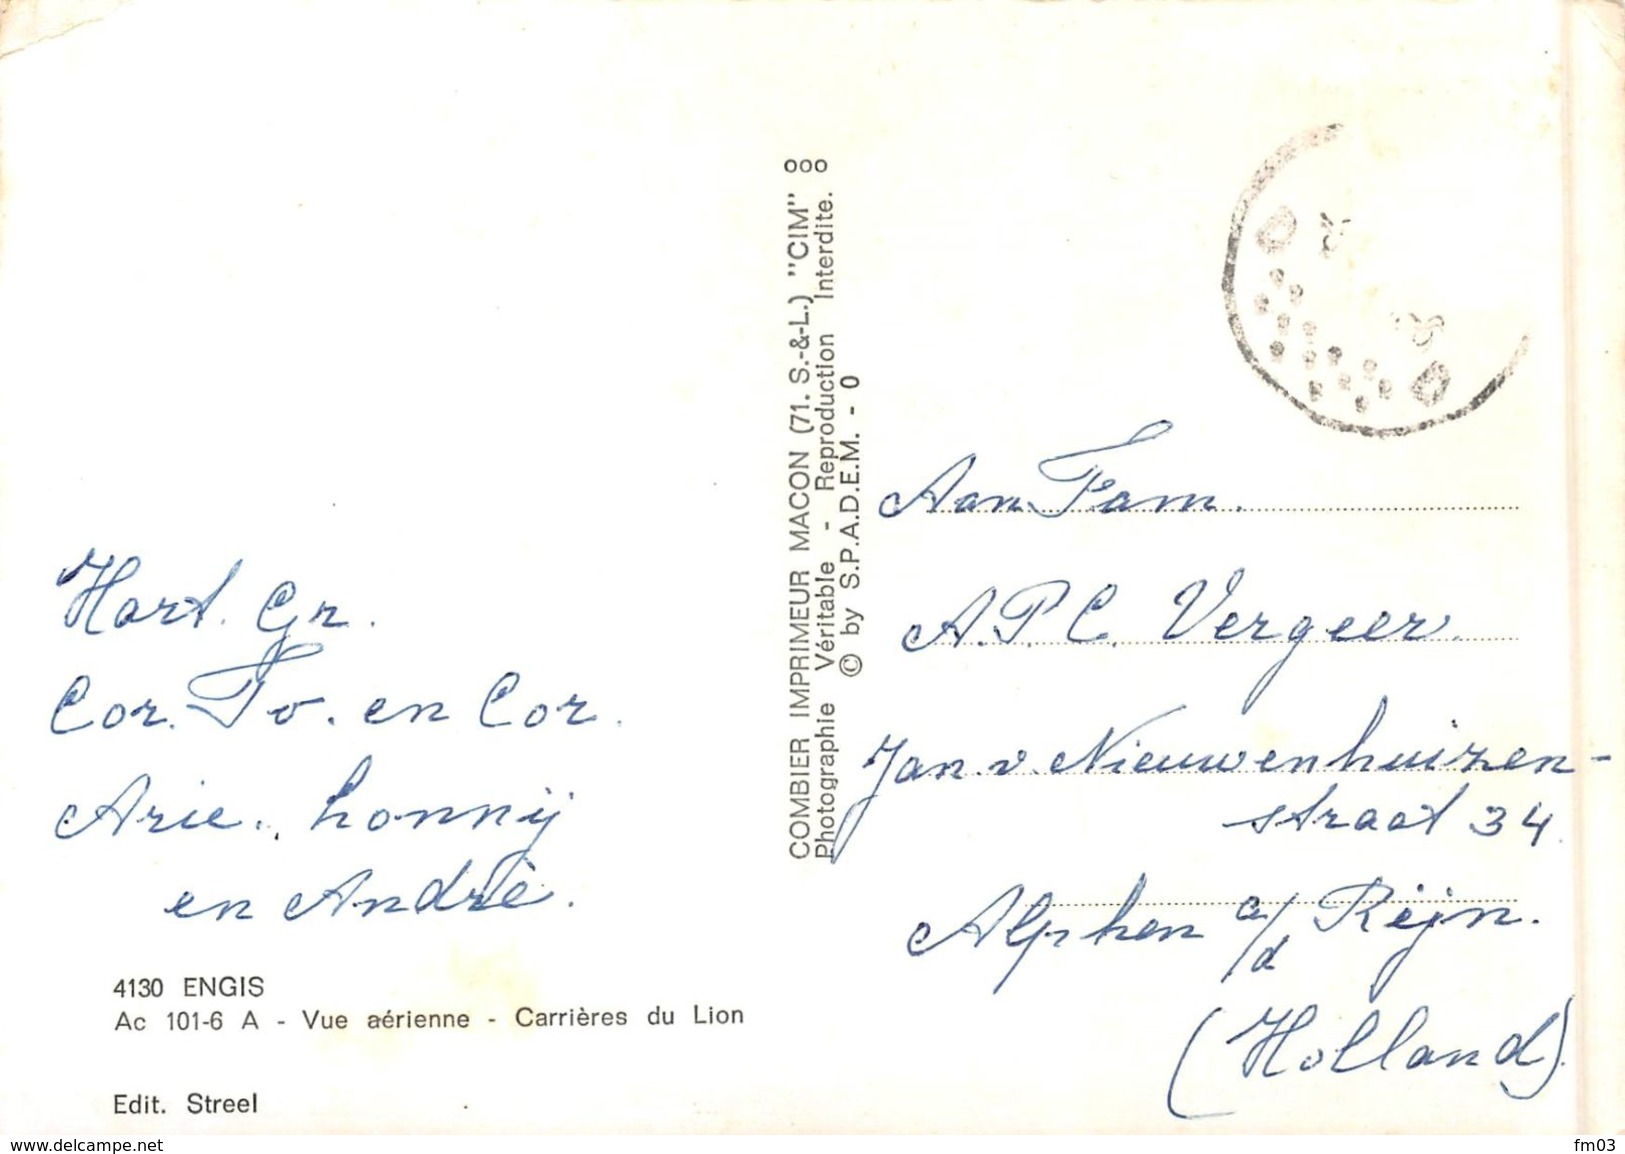 Hart. Gr.
Cor. To. en Cor.
Arie. honnij
en Andrè.
4130 ENGIS
Ac 101-6 A - Vue aérienne - Carrières du Lion
Edit. Streel
COMBIER IMPRIMEUR MACON (71. S.-&-L.) "CIM"
Photographie Véritable - Reproduction Interdite.
© by S.P.A.D.E.M. - 0
Aan Fam.
A.P.C. Vergeer.
Jan. v. Nieuwenhuizen-
straat 34
Alphen a/d Rijn.
(Holland)
www.delcampe.net
fm03